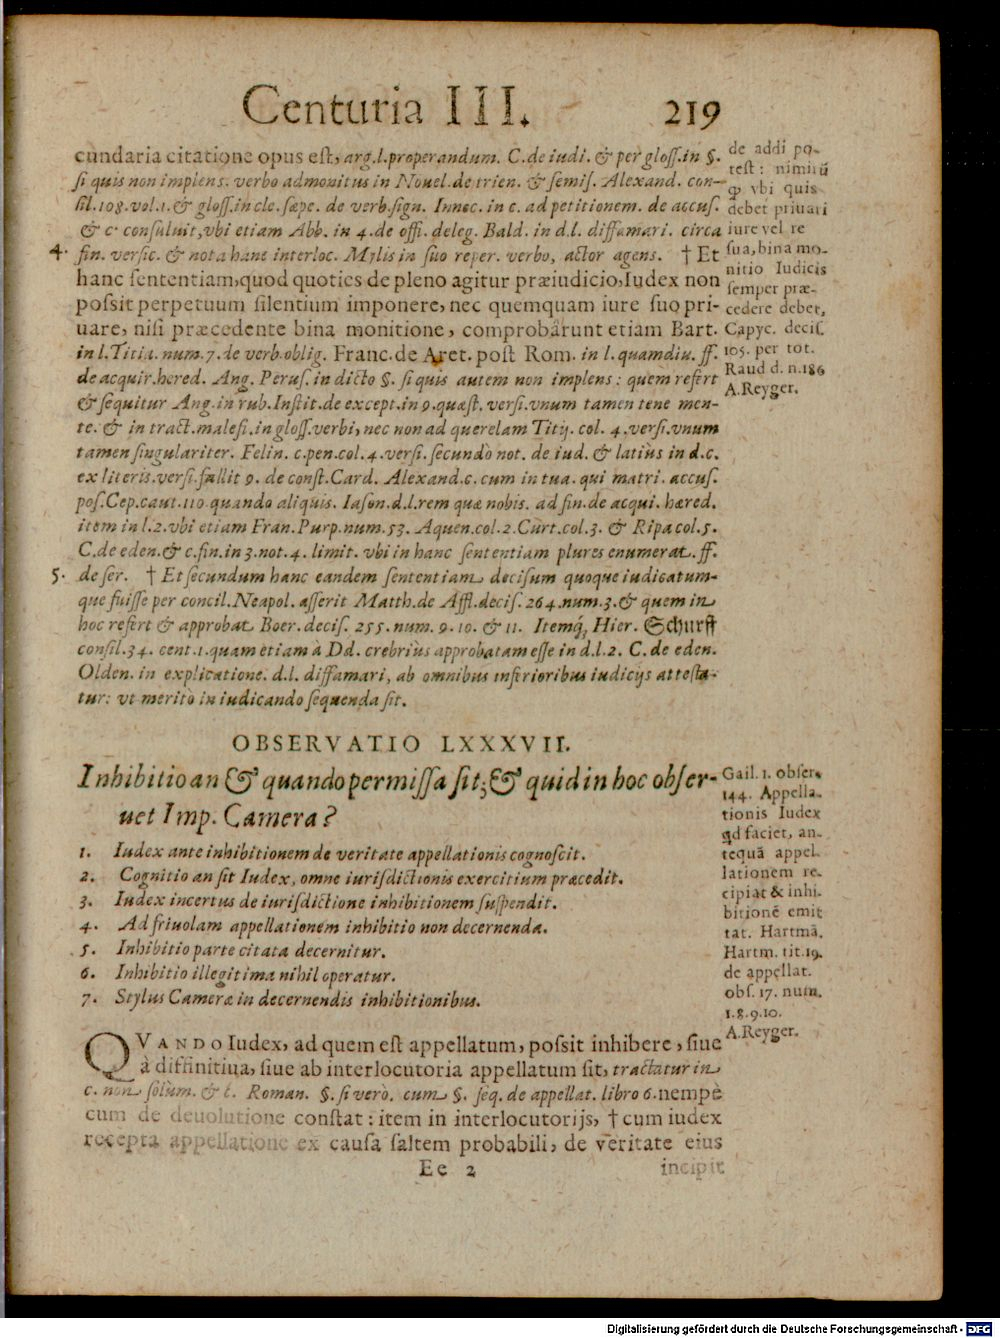 Centuria III. 219
cundaria citatione opus est, arg.l.properandum. C.de iudi. & per gloss.in §.
si quis non implens. verbo admonitus in Nouel.de trien. & semis. Alexand. con-
sil.108.vol.1.& gloss.in cle.sæpe. de verb.sign. Innec. in c. ad petitionem. de accus.
& c. consuluit, vbi etiam Abb. in 4.de offi. deleg. Bald. in d.l. diffamari. circa
4. fin. versic. & nota hanc interloc. Mylis in suo reper. verbo, actor agens. † Et
hanc sententiam, quod quoties de pleno agitur præiudicio, Iudex non
possit perpetuum silentium imponere, nec quemquam iure suo pri-
uare, nisi præcedente bina monitione, comprobârunt etiam Bart.
in l.Titia. num.7.de verb.oblig. Franc.de Aret. post Rom. in l.quamdiu. ff.
de acquir.hered. Ang. Perus. in dicto §. si quis autem non implens: quem refert
& sequitur Ang.in rub.Instit.de except.in 9.quæst. versi.vnum tamen tene men-
te. & in tract.malefi.in gloss.verbi, nec non ad querelam Titij. col. 4.versi.vnum
tamen singulariter. Felin. c.pen.col.4.versi. secundò not. de iud. & latiùs in d.c.
ex literis.versi.fallit 9. de const.Card. Alexand.c. cum in tua. qui matri. accus.
pos.Cep.caut.110 quando aliquis. Iason.d.l.rem quæ nobis. ad fin.de acqui. hæred.
item in l.2.vbi etiam Fran. Purp.num.53. Aquen.col.2.Curt.col.3. & Ripa col.5.
C.de eden.& c.fin.in 3.not.4. limit. vbi in hanc sententiam plures enumerat. ff.
5. de ser. † Et secundum hanc eandem sententiam decisum quoque iudicatum-
que fuisse per concil.Neapol. asserit Matth.de Affl.decis. 264.num.3.& quem in
hoc refert & approbat Boer. decis. 255. num. 9. 10. & 11. Itemq́; Hier. Schurff
consil.34. cent.1.quam etiam à Dd. crebriùs approbatam esse in d.l.2. C. de eden.
Olden. in explicatione. d.l. diffamari, ab omnibus inferioribus iudicijs attesta-
tur: vt meritò in iudicando sequenda sit.
de addi po-
test: nimirū
q̃ vbi quis
debet priuari
iure vel re
sua, bina mo-
nitio Iudicis
semper præ-
cedere debet,
Capyc. decis.
105. per tot.
Raud d. n.186
A.Reyger.
OBSERVATIO LXXXVII.
Inhibitio an & quando permissa sit; & quid in hoc obser-
uet Imp. Camera?
1. Iudex ante inhibitionem de veritate appellationis cognoscit.
2. Cognitio an sit Iudex, omne iurisdictionis exercitium præcedit.
3. Iudex incertus de iurisdictione inhibitionem suspendit.
4. Ad friuolam appellationem inhibitio non decernenda.
5. Inhibitio parte citata decernitur.
6. Inhibitio illegitima nihil operatur.
7. Stylus Cameræ in decernendis inhibitionibus.
Gail. 1. obser.
144. Appella-
tionis Iudex
qd faciet, an-
tequã appel-
lationem re-
cipiat & inhi-
bitionē emit
tat. Hartmã.
Hartm. tit.19.
de appellat.
obs. 17. num.
1.8.9.10.
A.Reyger.
QVANDO Iudex, ad quem est appellatum, possit inhibere, siue
à diffinitiua, siue ab interlocutoria appellatum sit, tractatur in
c. non solùm. & c. Roman. §. si verò. cum §. seq. de appellat. libro 6. nempè
cum de deuolutione constat: item in interlocutorijs, † cum iudex
recepta appellatione ex causa saltem probabili, de veritate eius
Ee 2 incipit
Digitalisierung gefördert durch die Deutsche Forschungsgemeinschaft - DFG